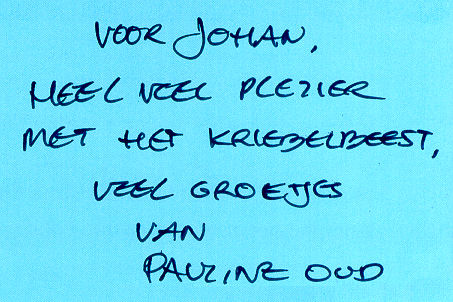 VOOR JOHAN,
HEEL VEEL PLEZIER
MET HET KRIEBELBEEST,
VEEL GROETJES
VAN
PAULINE OUD